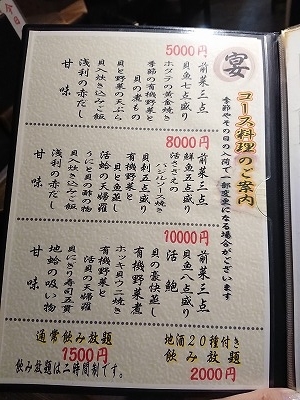 宴
コース料理のご案内
季節やその日の入荷で一部変更になる場合がございます
5000円
前菜三点
貝魚七点盛り
ホタテの黄金焼き
季節の有機野菜と
貝の煮もの
貝と野菜の天ぷら
貝入炊き込みご飯
浅利の赤だし
甘味
8000円
前菜三点
鮮魚五点盛り
活さざえの
バジルソース焼き
貝刺五点盛り
貝と魚蒸し
有機野菜と
活蛤の天婦羅
うにと貝の酢の物
貝入炊き込みご飯
浅利の赤だし
甘味
10000円
前菜三点
貝魚八点盛り
活鮑
貝の豪快蒸し
有機野菜煮
ホッキ貝ウニ焼き
有機野菜と
活貝の天婦羅
貝にぎり寿司五貫
地蛤の吸い物
甘味
通常飲み放題
1500円
飲み放題は二時間制です。
地酒20種付き
飲み放題
2000円